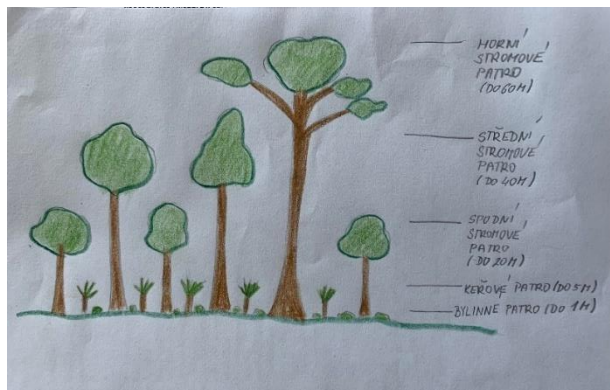 HORNÍ
STROMOVÉ
PATRO
(DO 60M)
STŘEDNÍ
STROMOVÉ
PATRO
(DO 40M)
SPODNÍ
STROMOVÉ
PATRO
(DO 20M)
KEŘOVÉ PATRO (DO 5M)
BYLINNÉ PATRO (DO 1M)